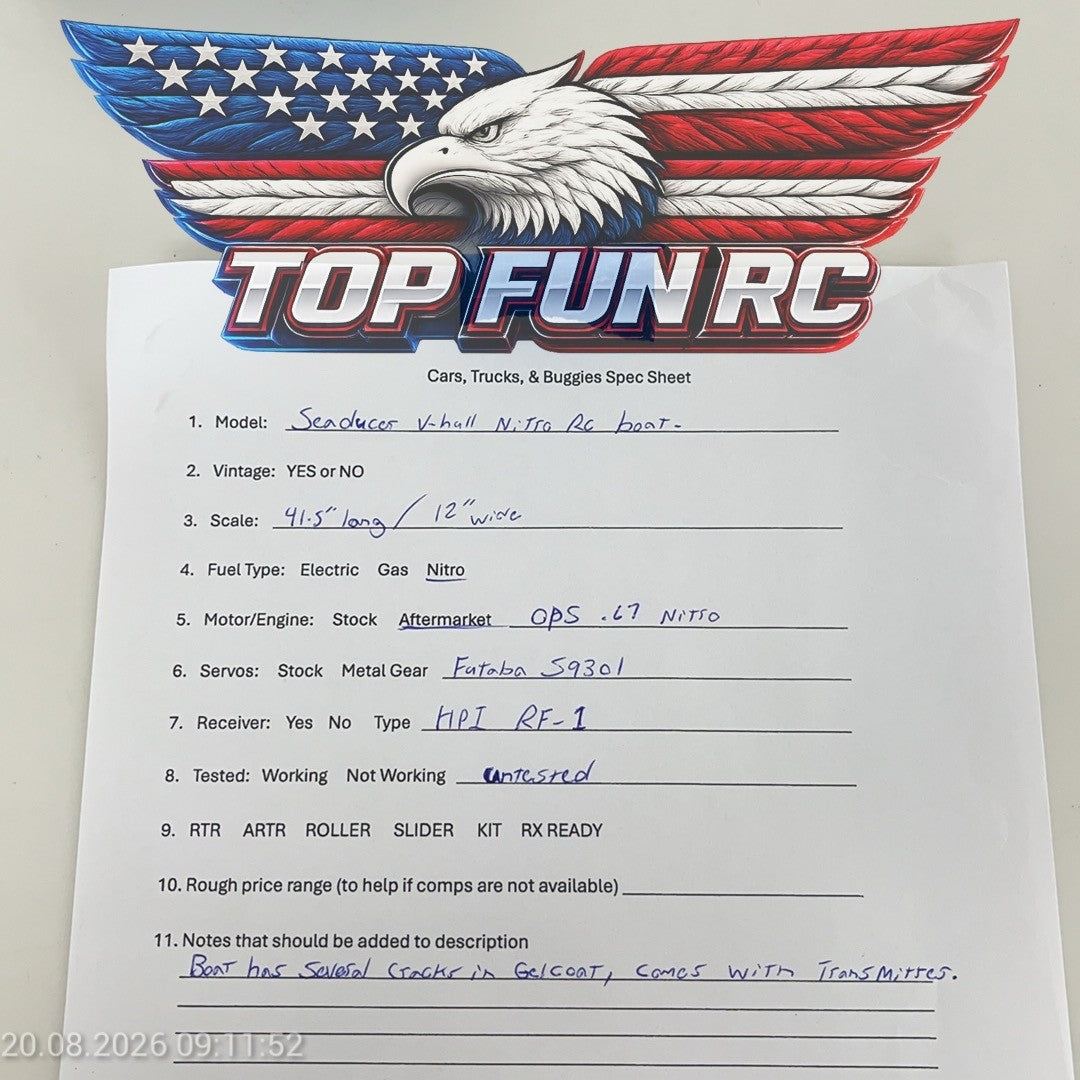 TOP FUN RC
Cars, Trucks, & Buggies Spec Sheet
1. Model: Seaducer V-hull Nitro Rc boat-
2. Vintage: YES or NO
3. Scale: 41.5" long / 12" wide
4. Fuel Type: Electric Gas Nitro
5. Motor/Engine: Stock Aftermarket OPS .67 Nitro
6. Servos: Stock Metal Gear Futaba S9301
7. Receiver: Yes No Type HPI RF-1
8. Tested: Working Not Working untested
9. RTR ARTR ROLLER SLIDER KIT RX READY
10. Rough price range (to help if comps are not available)
11. Notes that should be added to description
Boat has several cracks in Gelcoat, comes with Transmitter.
20.08.2026 09:11:52